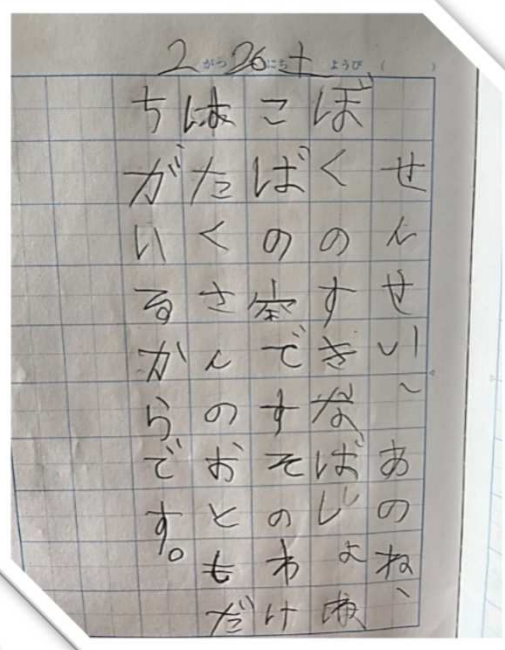 2がつ26にち土ようび( )
せんせい、あのね、
ぼくのすきなばしょは
こばのですそのわけ
はたくさんのおともだ
ちがいるからです。